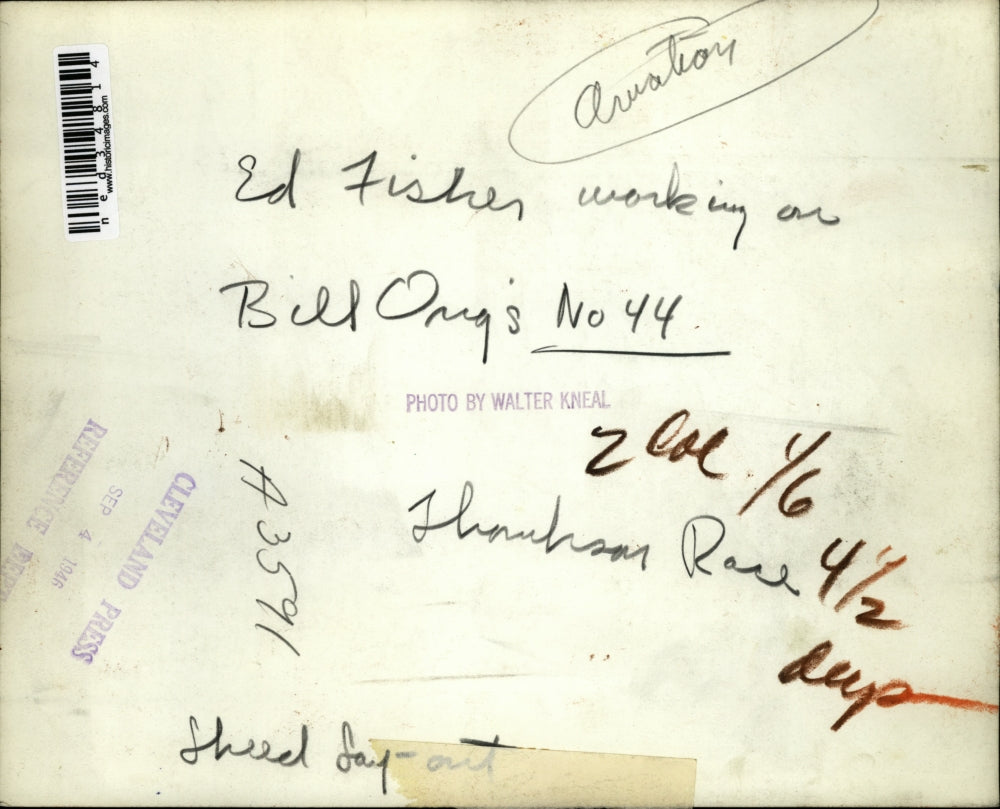 Aviation
ned34814
www.historicimages.com
Ed Fisher working on
Bill Ong's No 44.
PHOTO BY WALTER KNEAL
2 Col 1/6
Thompson Race 4 1/2
deep
A 3591
CLEVELAND PRESS
SEP 4 1946
REFERENCE DEPT
Lay-out